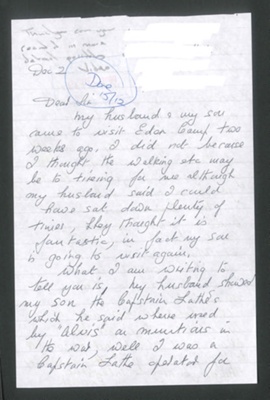 Doc 2
Doc
15/12
Dear Sir
My husband & my son
came to visit Eden Camp two
weeks ago. I did not because
I thought the walking etc may
be to tireing for me although
my husband said I could
have sat down plenty of
times, they thought it is
fantastic, in fact my son
is going to visit again.
What I am writing to
tell you is, my husband showed
my son the Capstain Lathe's
which he said where used
by "Alvis" on munitions in
the war, well I was a
Capstain Lathe operator for